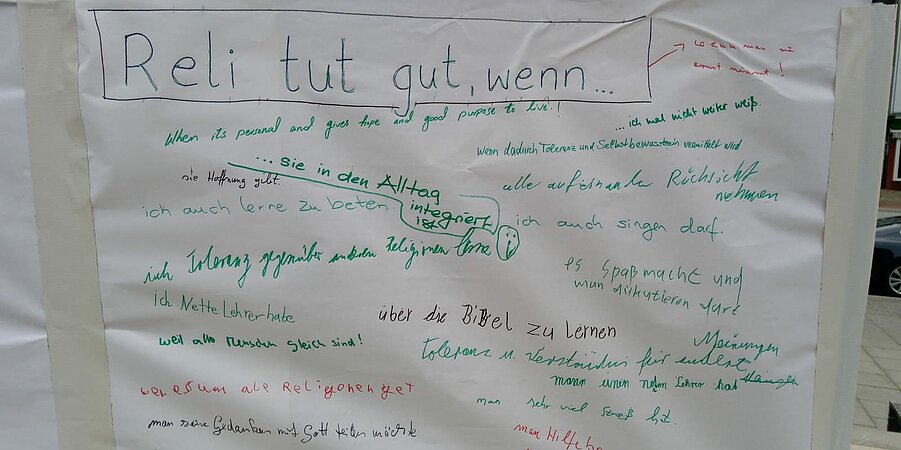 Reli tut gut, wenn...
wenn man sie
ernst nimmt!
When its personal and gives hope and good purpose to live!!
...ich mal nicht weiter weiß.
wenn dadurch Toleranz und Selbstbewusstsein vermittelt wird
...sie in den Alltag
integriert
ist
sie Hoffnung gibt.
alle aufeinander Rücksicht
nehmen
ich auch lerne zu beten.
ich auch singen darf.
ich Toleranz gegenüber anderen Religionen lerne
es Spaß macht und
man diskutieren darf
ich Nette Lehrer habe
über die Bibel zu lernen
weil alle Menschen gleich sind!
Toleranz u. Verständnis für andere
Meinungen
mann einen Lehrer hat
wen es um ale Religionen get
man sehr viel
man seine Gedanken mit Gott teilen möchte
man Hilfe